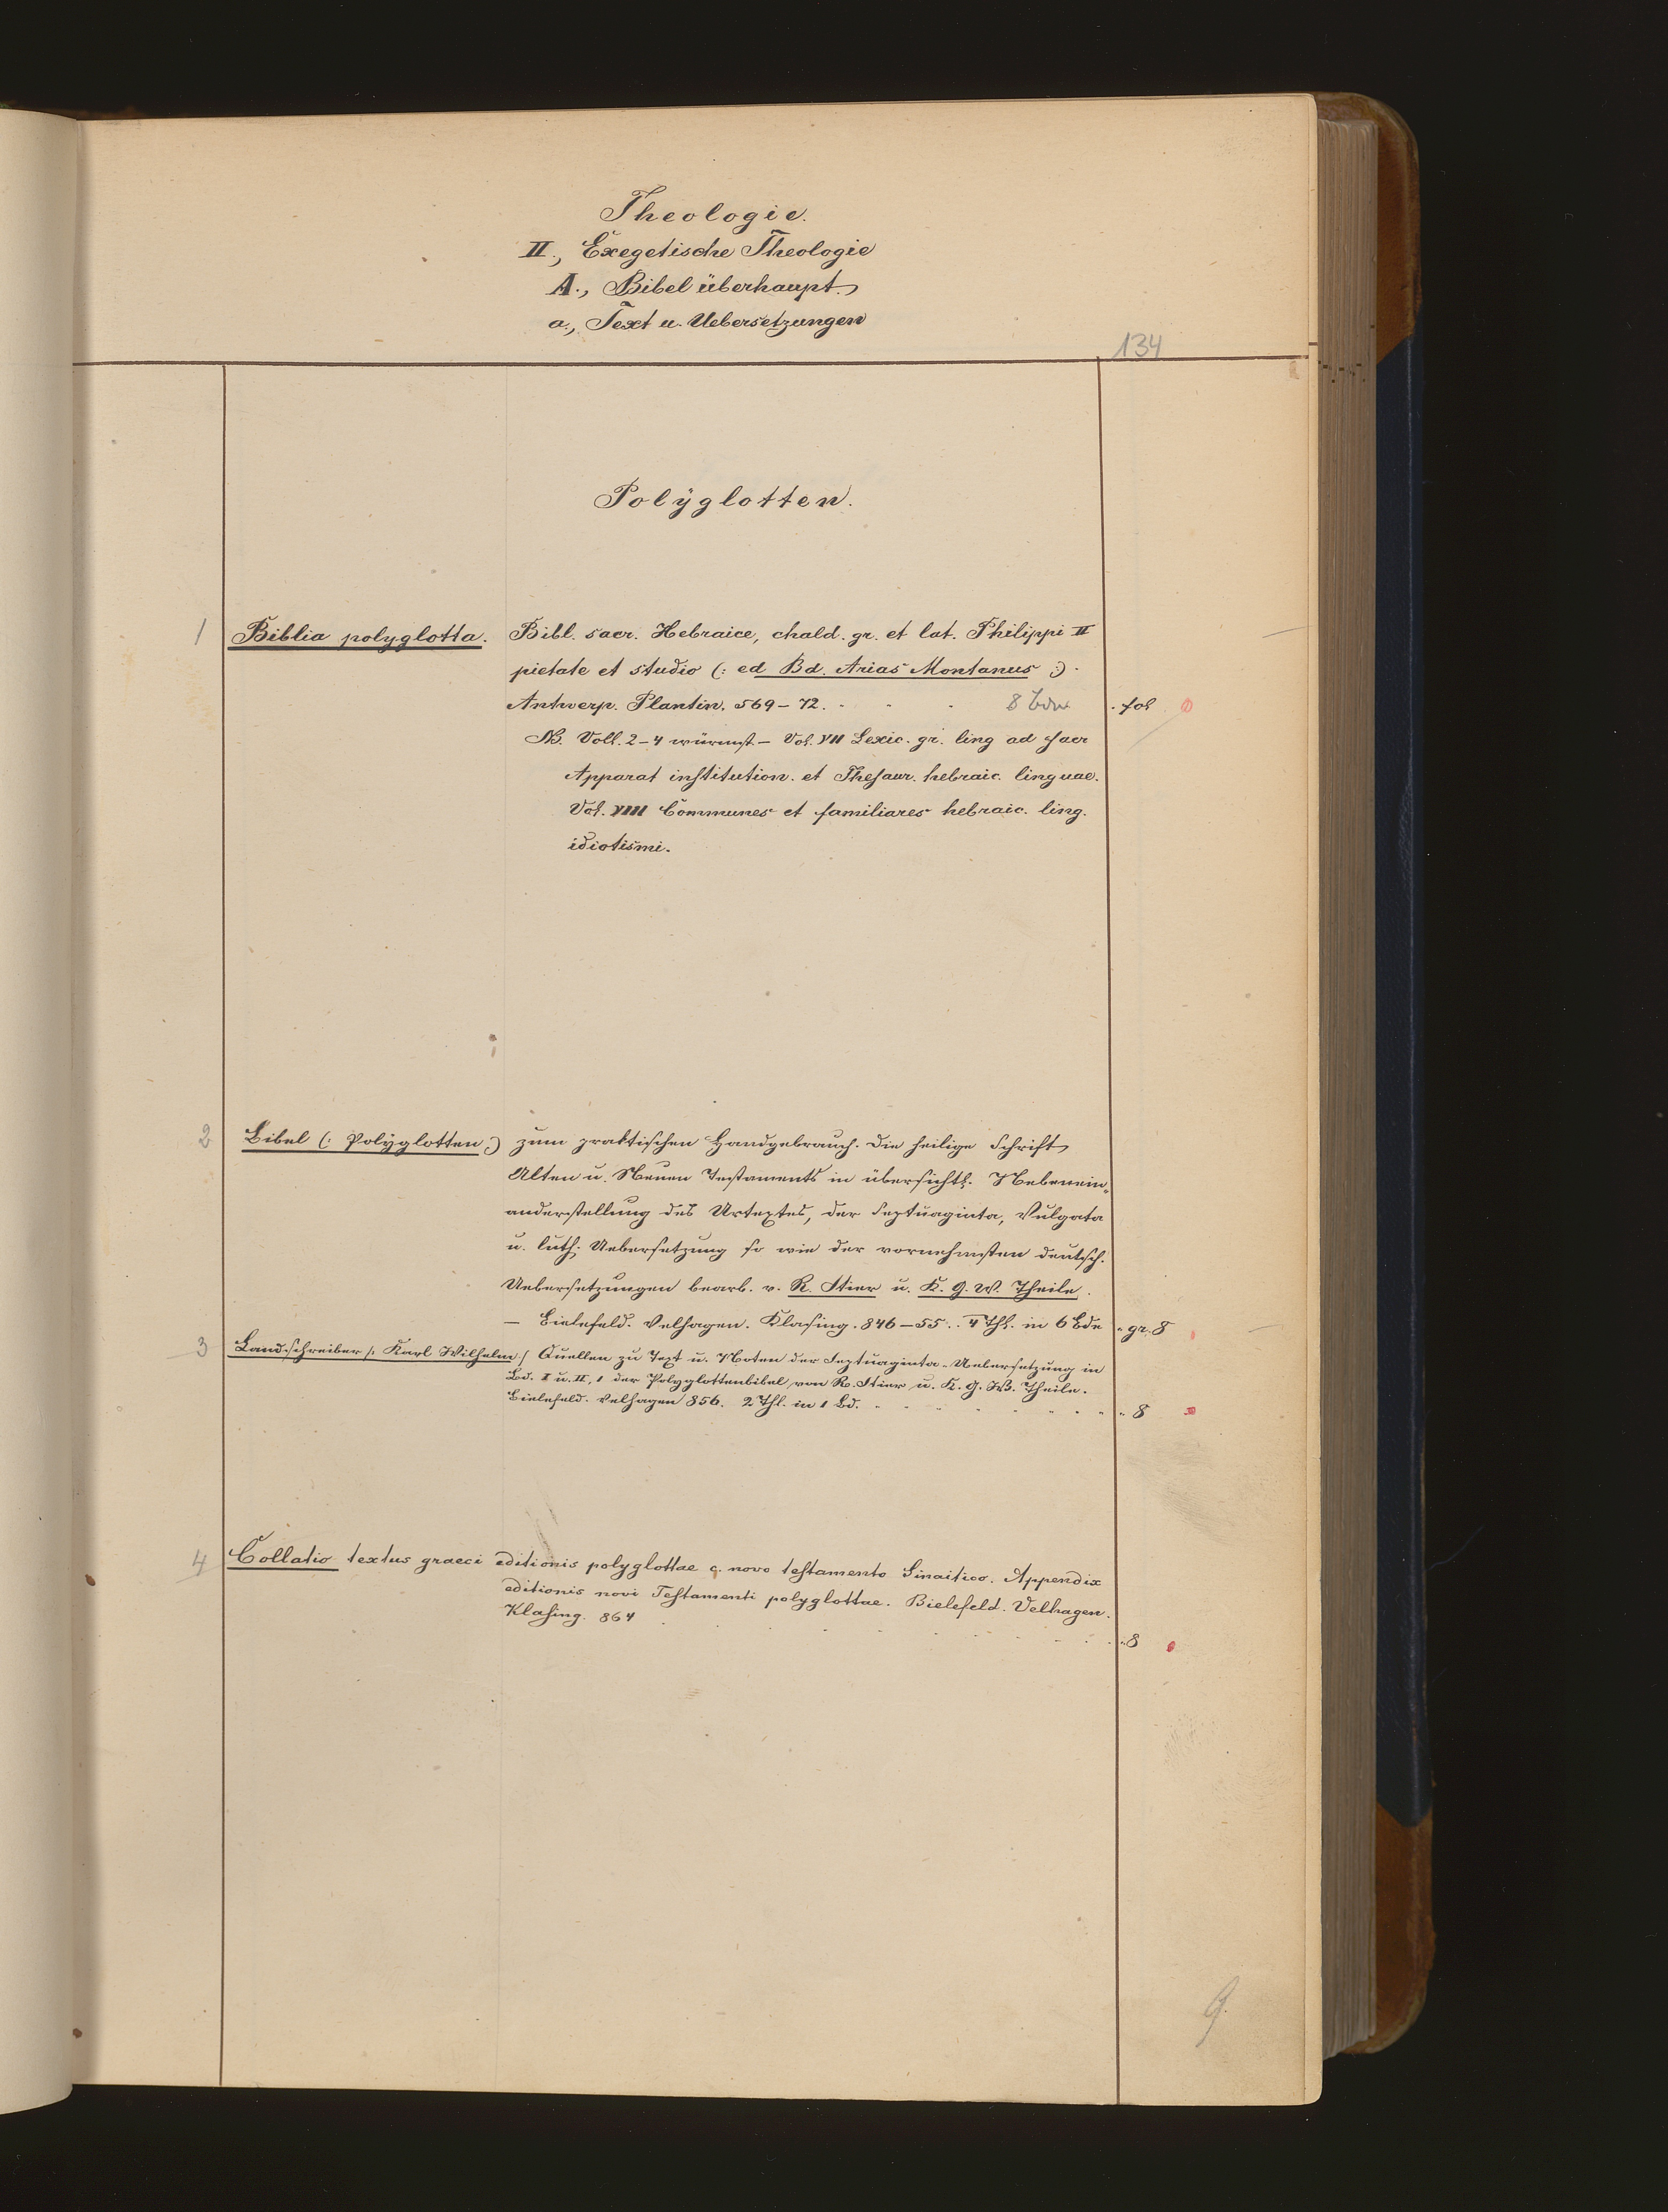 Theologie.
II., Exegetische Theologie
A., Bibel überhaupt.
a., Text u. Uebersetzungen
134
Polÿglotten.
1 Biblia polyglotta. Bibl. sacr. Hebraice, chald. gr. et lat. Philippi II
pietate et studio (: ed Bd. Arias Montanus :) .
Antverp. Plantin. 569 – 72. . . . 8 Bde . fol
NB. Voll. 2–4 würmst. – Vol. VII Lexic. gr. ling ad sacr
Apparat institution. et Thesaur. hebraic. linguae.
Vol. VIII Communes et familiares hebraic. ling.
idiotismi.
2 Bibel (: Polÿglotten :) zum praktischen Handgebrauch. Die heilige Schrift
Alten u. Neuen Testaments in übersichtl. Nebenein-
anderstellung des Urtextes, der Septuaginta, Vulgata
u. luth. Uebersetzung so wie der vornehmsten deutsch.
Uebersetzungen bearb. v. R. Stier u. K. G. W. Theile.
– Bielefeld. Velhagen. Klasing. 846–55. . 4 Thl. in 6 Bde . gr. 8
3 Landschreiber /: Karl Wilhelm :/ Quellen zu Text u. Noten der Septuaginta-Uebersetzung in
Bd. I u. II, 1 der Polÿglottenbibel von R. Stier u. K. G. W. Theile.
Bielefeld. Velhagen 856. 2 Thl. in 1 Bd. . . . . . . . . 8
4 Collatio textus graeci editionis polyglottae c. novo testamento Sinaitico. Appendix
editionis novi Testamenti polyglottae. Bielefeld. Velhagen.
Klasing. 864 . . . . . . . . 8
9.